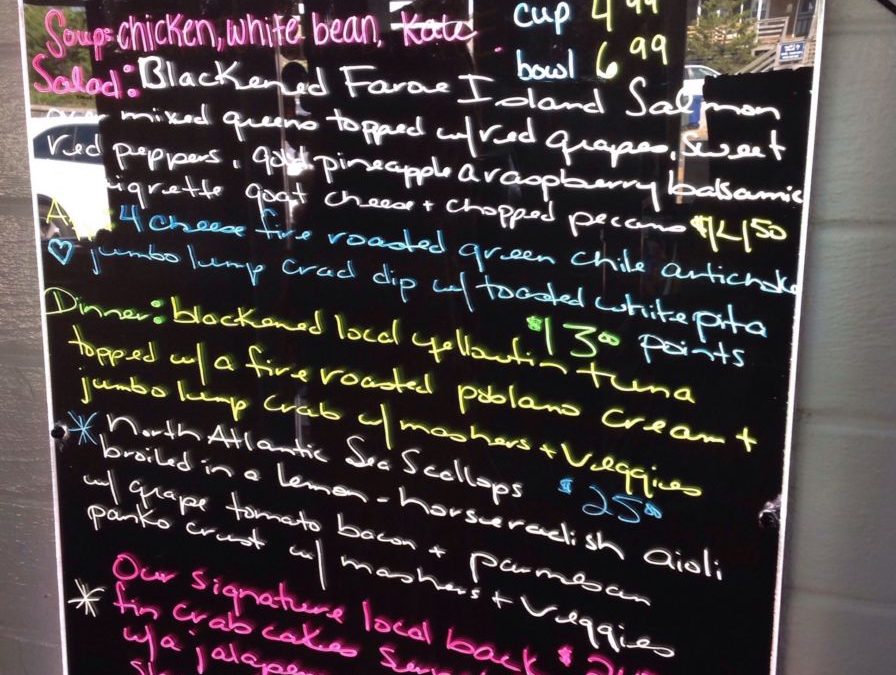 Soup: chicken, white bean, Kale cup 4.99
bowl 6.99
Salad: Blackened Faroe Island Salmon
over mixed greens topped w/ red grapes, sweet
red peppers, gold pineapple a raspberry balsamic
aigrette goat cheese + chopped pecans $14.50
App: 4 cheese fire roasted green chile artichoke
♡ jumbo lump crab dip w/ toasted white pita
$13.00 points
Dinner: blackened local yellowfin tuna
topped w/ a fire roasted poblano cream +
jumbo lump crab w/ mashers + Veggies
* North Atlantic Sea Scallops $25.00
broiled in a lemon-horseradish aioli
w/ grape tomato bacon + parmesan
panko crust w/ mashers + Veggies
* Our signature local back
fin crab cakes
w/ a jalape